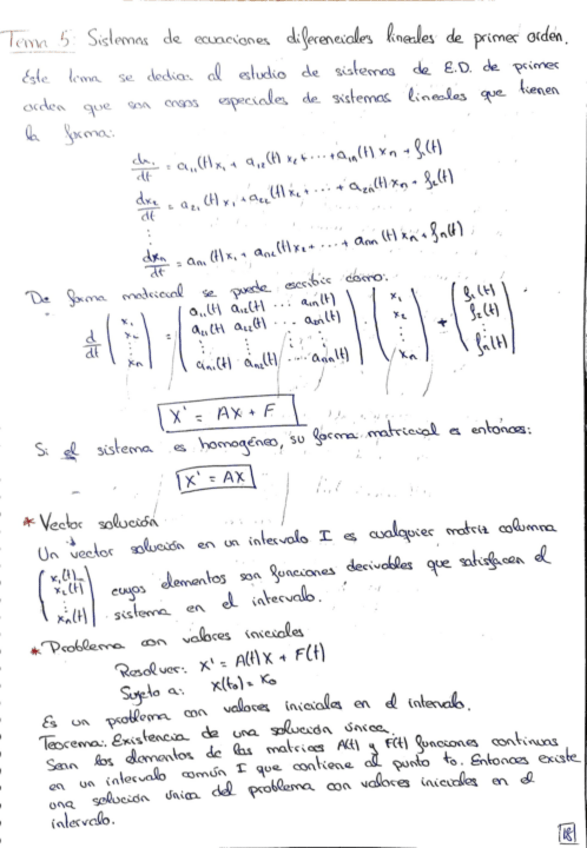 Tema 5 Sistemas de ecuaciones diferenciales lineales de primer orden.
Este tema se dedica al estudio de sistemas de E.D. de primer
orden que son casos especiales de sistemas lineales que tienen
la forma:
dx₁/dt = a₁₁(t)x₁ + a₁₂(t)x₂ + ··· + a₁ₙ(t)xₙ + f₁(t)
dx₂/dt = a₂₁(t)x₁ + a₂₂(t)x₂ + ··· + a₂ₙ(t)xₙ + f₂(t)
⋮
dxₙ/dt = aₙ₁(t)x₁ + aₙ₂(t)x₂ + ··· + aₙₙ(t)xₙ + fₙ(t)
De forma matricial se puede escribir como:
d/dt (x₁ x₂ ⋮ xₙ) = (a₁₁(t) a₁₂(t) ··· a₁ₙ(t) a₂₁(t) a₂₂(t) ··· a₂ₙ(t) ⋮ ⋮ ⋮ aₙ₁(t) aₙ₂(t) ··· aₙₙ(t)) · (x₁ x₂ ⋮ xₙ) + (f₁(t) f₂(t) ⋮ fₙ(t))
X' = AX + F
Si el sistema es homogéneo, su forma matricial es entonces:
X' = AX
* Vector solución
Un vector solución en un intervalo I es cualquier matriz columna
(x₁(t) x₂(t) ⋮ xₙ(t)) cuyos elementos son funciones derivables que satisfacen el
sistema en el intervalo.
* Problema con valores iniciales
Resolver: X' = A(t)X + F(t)
Sujeto a: X(t₀) = X₀
Es un problema con valores iniciales en el intervalo.
Teorema: Existencia de una solución única.
Sean los elementos de las matrices A(t) y F(t) funciones continuas
en un intervalo común I que contiene al punto t₀. Entonces existe
una solución única del problema con valores iniciales en el
intervalo.
18